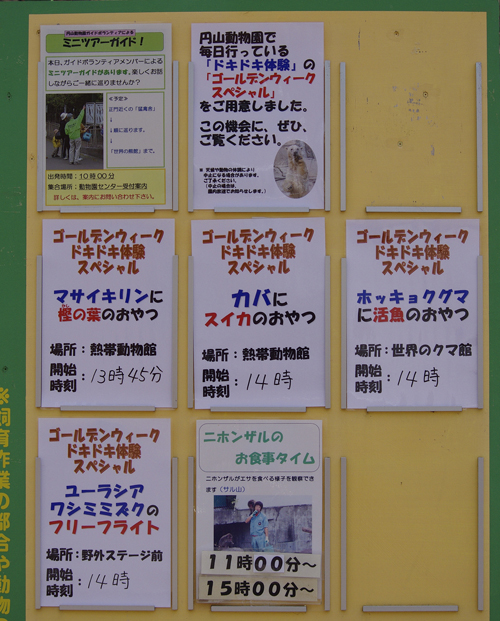 円山動物園ガイドボランティアによる
ミニツアーガイド！
本日、ガイドボランティアメンバーによる
ミニツアーガイドがあります。楽しくお話
しながらご一緒に巡りませんか？
＜予定＞
正門近くの
↓
↓
「世界の熊館」まで。
出発時間：１０時００分
集合場所：動物園センター受付案内
詳しくは、案内にお問い合わせ下さい。
円山動物園で
毎日行っている
「ドキドキ体験」の
「ゴールデンウィーク
スペシャル」
をご用意しました。
この機会に、ぜひ、
ご覧ください。
※ 天候や動物の体調により
中止になる場合があります。
ご了承ください。
（中止の場合は、
園内放送でお知らせします。）
ゴールデンウィーク
ドキドキ体験
スペシャル
マサイキリンに
かし
樫の葉のおやつ
場所：熱帯動物館
開始
時刻：13時45分
ゴールデンウィーク
ドキドキ体験
スペシャル
カバに
スイカのおやつ
場所：熱帯動物館
開始
時刻：14時
ゴールデンウィーク
ドキドキ体験
スペシャル
ホッキョクグマ
に活魚のおやつ
場所：世界のクマ館
開始
時刻：14時
ゴールデンウィーク
ドキドキ体験
スペシャル
ユーラシア
ワシミミズクの
フリーフライト
場所：野外ステージ前
開始
時刻：14時
ニホンザルの
お食事タイム
ニホンザルがエサを食べる様子を観察でき
ます（サル山）
１１時００分～
１５時００分～
※飼育作業の都合や動物の